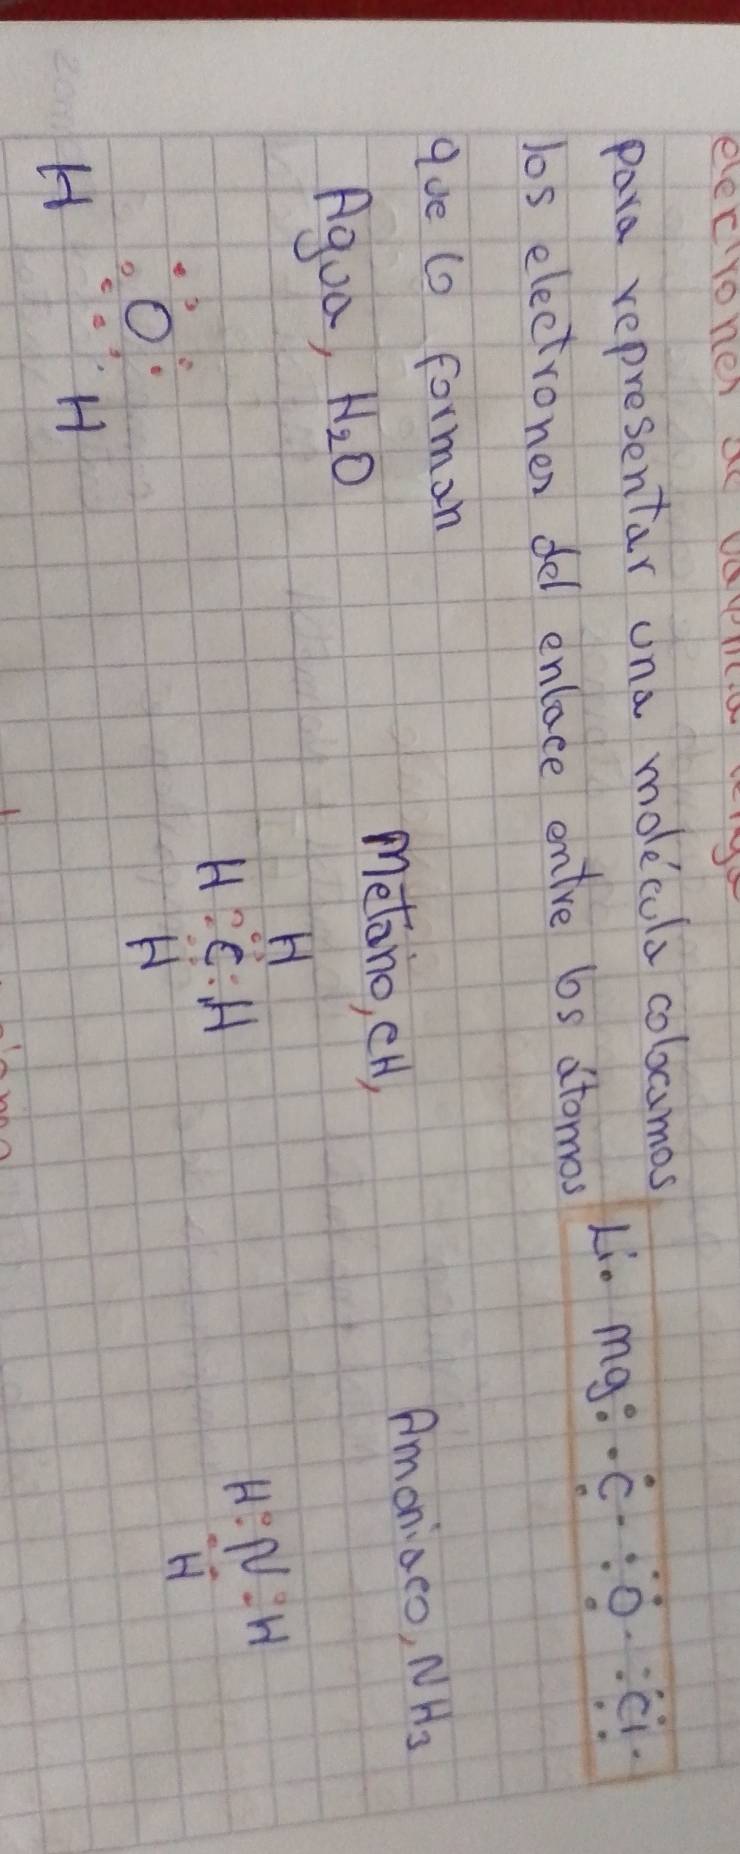 electrones de valencia tenga
Para representar una molécula colocamos
los electrones del enlace entre los átomos
que lo forman
Li· Mg: ·C· :O· :Cl·
Agua, H₂O Metano, CH, Amoniaco, NH₃
H O H
H
H C H
H
H N H
H